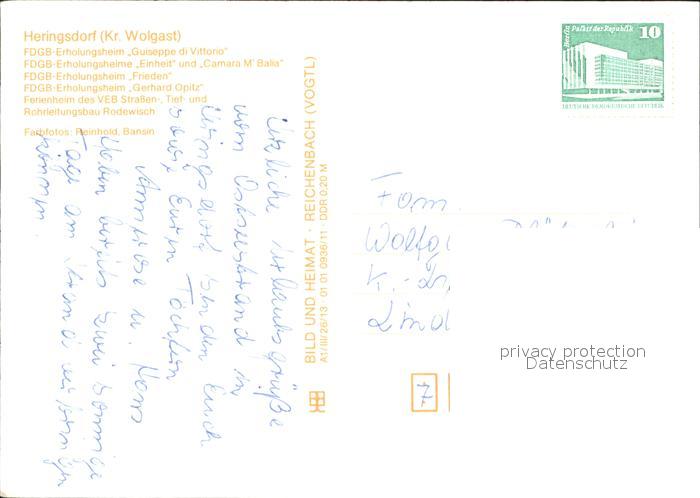 Heringsdorf (Kr. Wolgast)
FDGB-Erholungsheim „Guiseppe di Vittorio"
FDGB-Erholungsheime „Einheit" und „Camara M' Balia"
FDGB-Erholungsheim „Frieden"
FDGB-Erholungsheim „Gerhard Opitz"
Ferienheim des VEB Straßen-, Tief- und
Rohrleitungsbau Rodewisch
Farbfotos: Reinhold, Bansin
Herzliche Urlaubsgrüße
vom Ostseestrand in
senden Euch
sowie Euren Töchtern
Annliese u. Hans
Haben bereits zwei sonnige
Tage am Strand verbringen
können.
BILD UND HEIMAT · REICHENBACH (VOGTL)
A1/III/26/13 · 01 01 0936/11 · DDR 0.20 M
Berlin Palast der Republik 10
DEUTSCHE DEMOKRATISCHE REPUBLIK
Fam.
Wolfg
K.-
Lind
7
privacy protection
Datenschutz